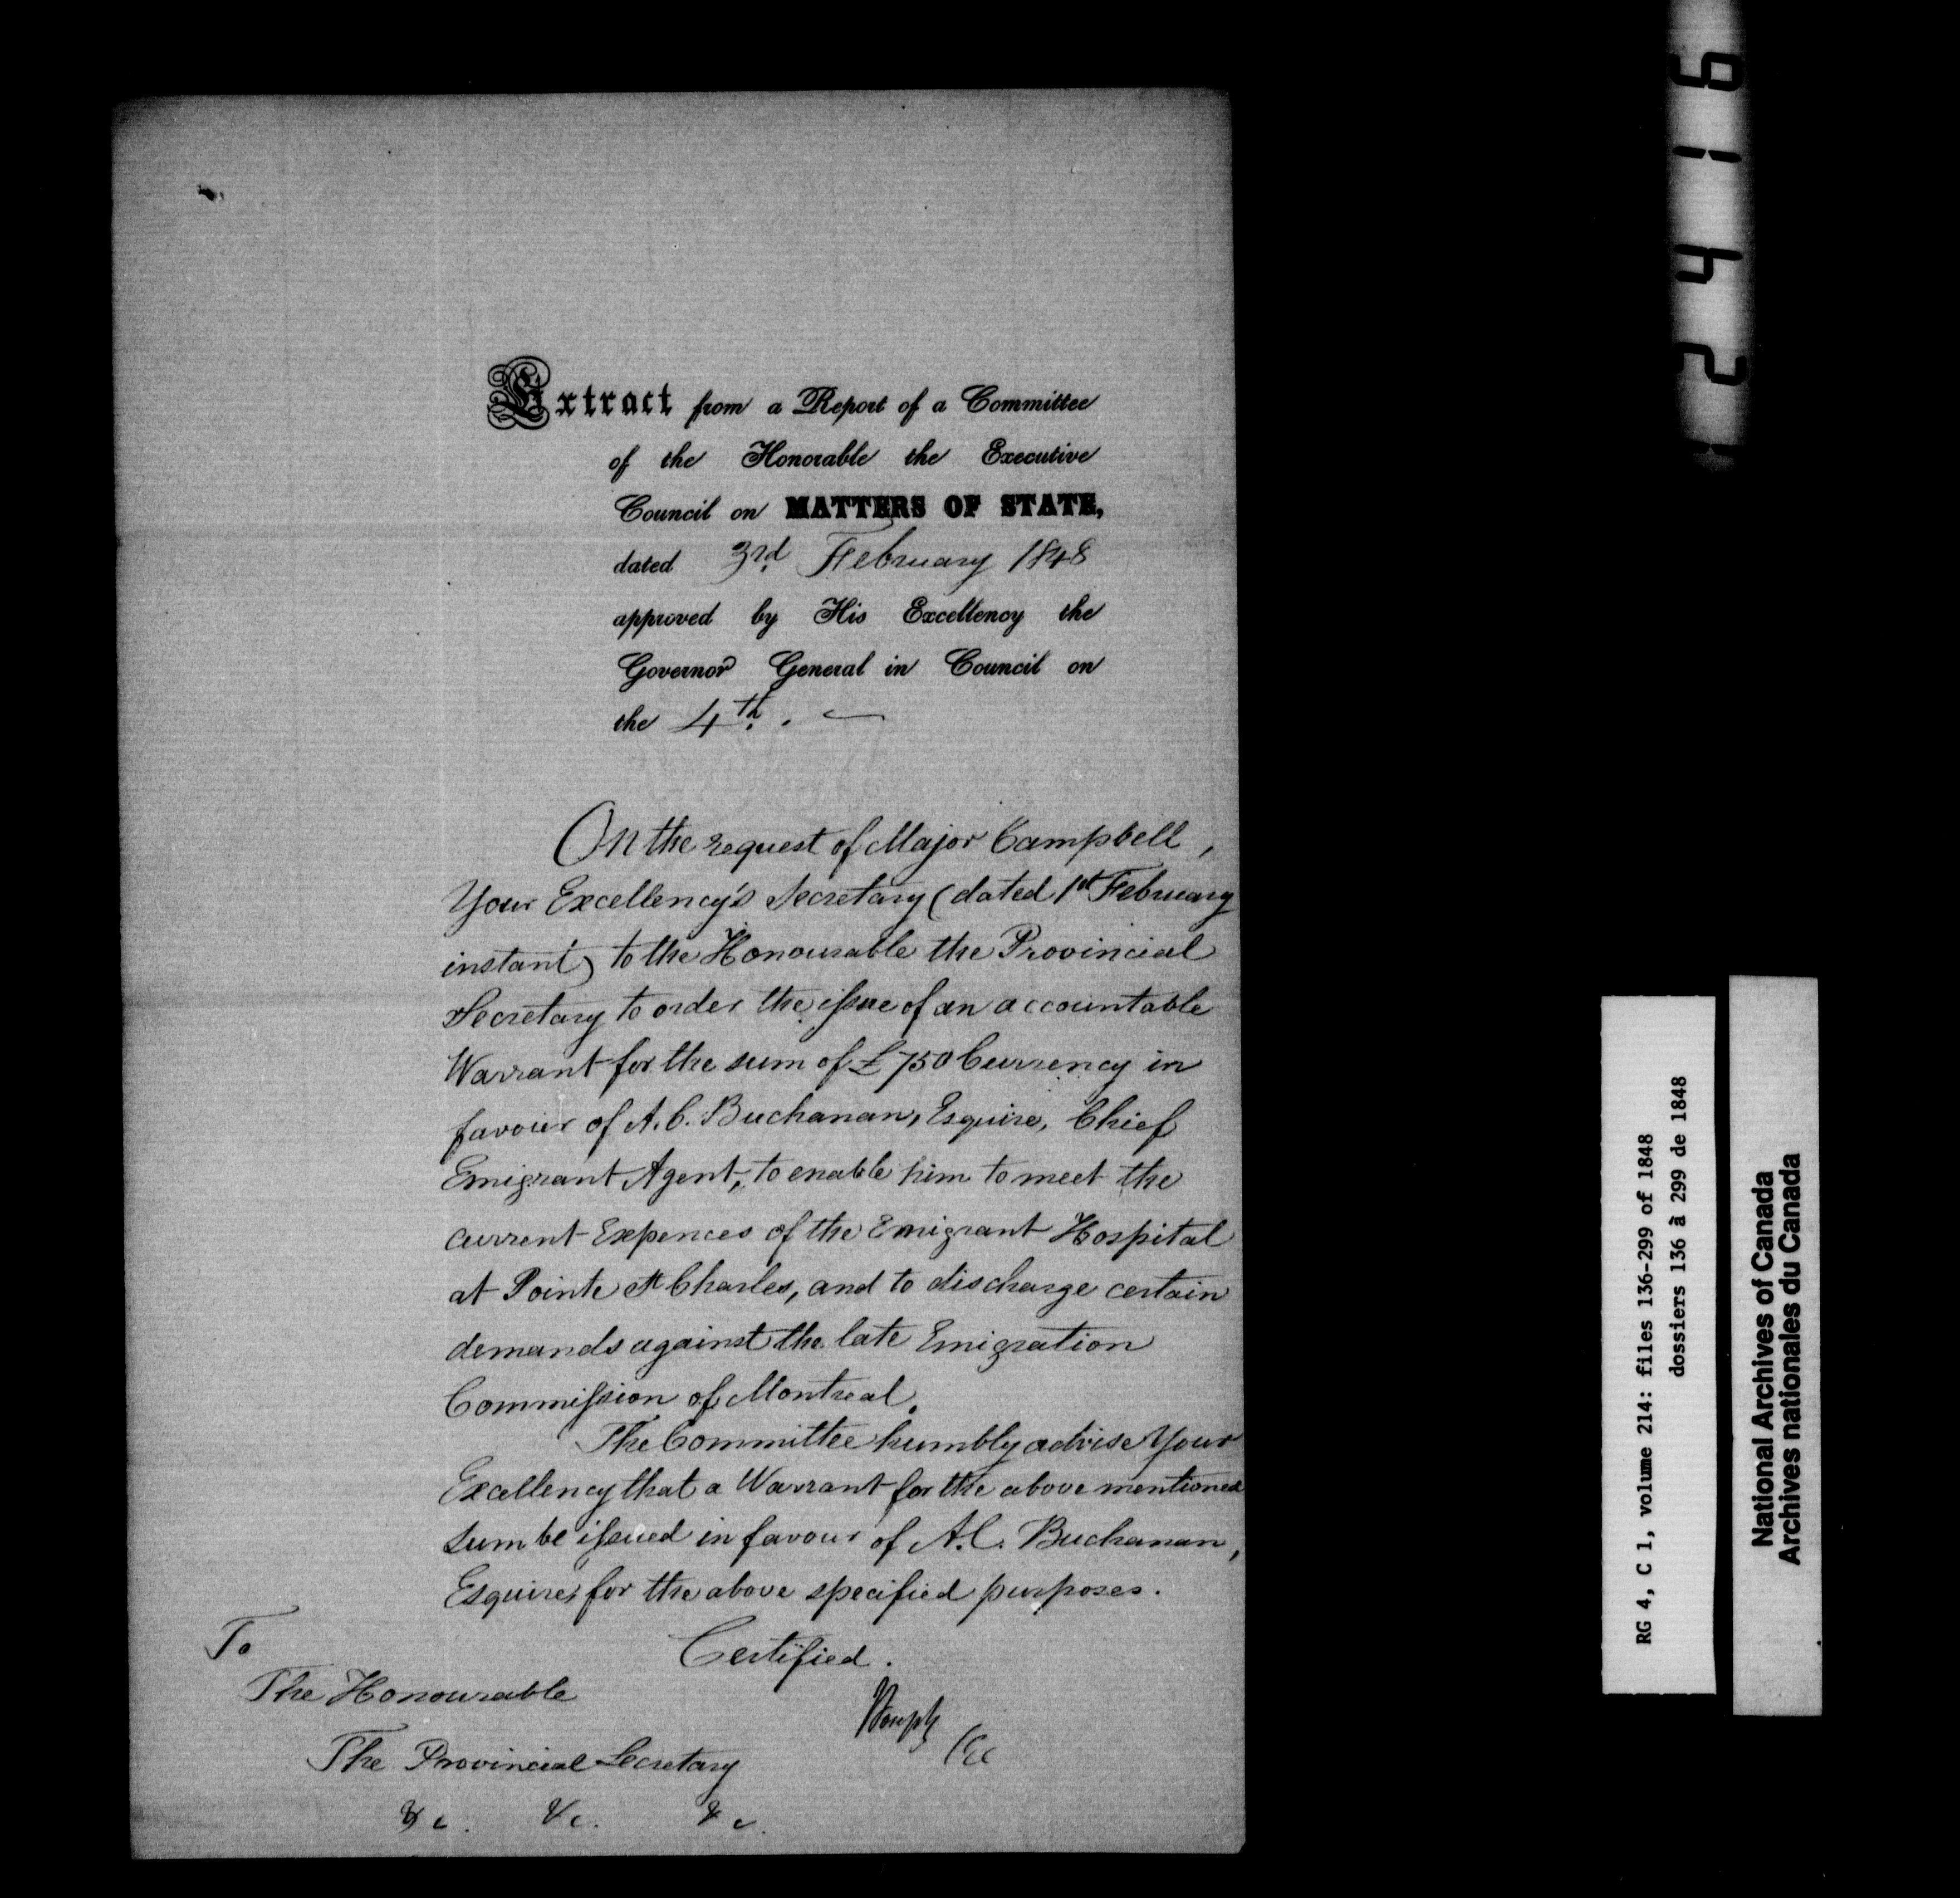 Extract from a Report of a Committee
of the Honorable the Executive
Council on MATTERS OF STATE,
dated 3rd February 1848
approved by His Excellency the
Governor General in Council on
the 4th. —
On the request of Major Campbell,
Your Excellency's Secretary (dated 1st February
instant) to the Honourable the Provincial
Secretary to order the issue of an accountable
Warrant for the sum of £750 Currency in
favour of A. C. Buchanan, Esquire, Chief
Emigrant Agent, to enable him to meet the
current Expences of the Emigrant Hospital
at Pointe St Charles, and to discharge certain
demands against the late Emigration
Commission of Montreal.
The Committee humbly advise Your
Excellency that a Warrant for the above mentioned
sum be issued in favour of A. C. Buchanan,
Esquire, for the above specified purposes.
Certified.
To
The Honourable
The Provincial Secretary
&c. &c. &c.
RG 4, C 1, volume 214: files 136-299 of 1848
dossiers 136 à 299 de 1848
National Archives of Canada
Archives nationales du Canada